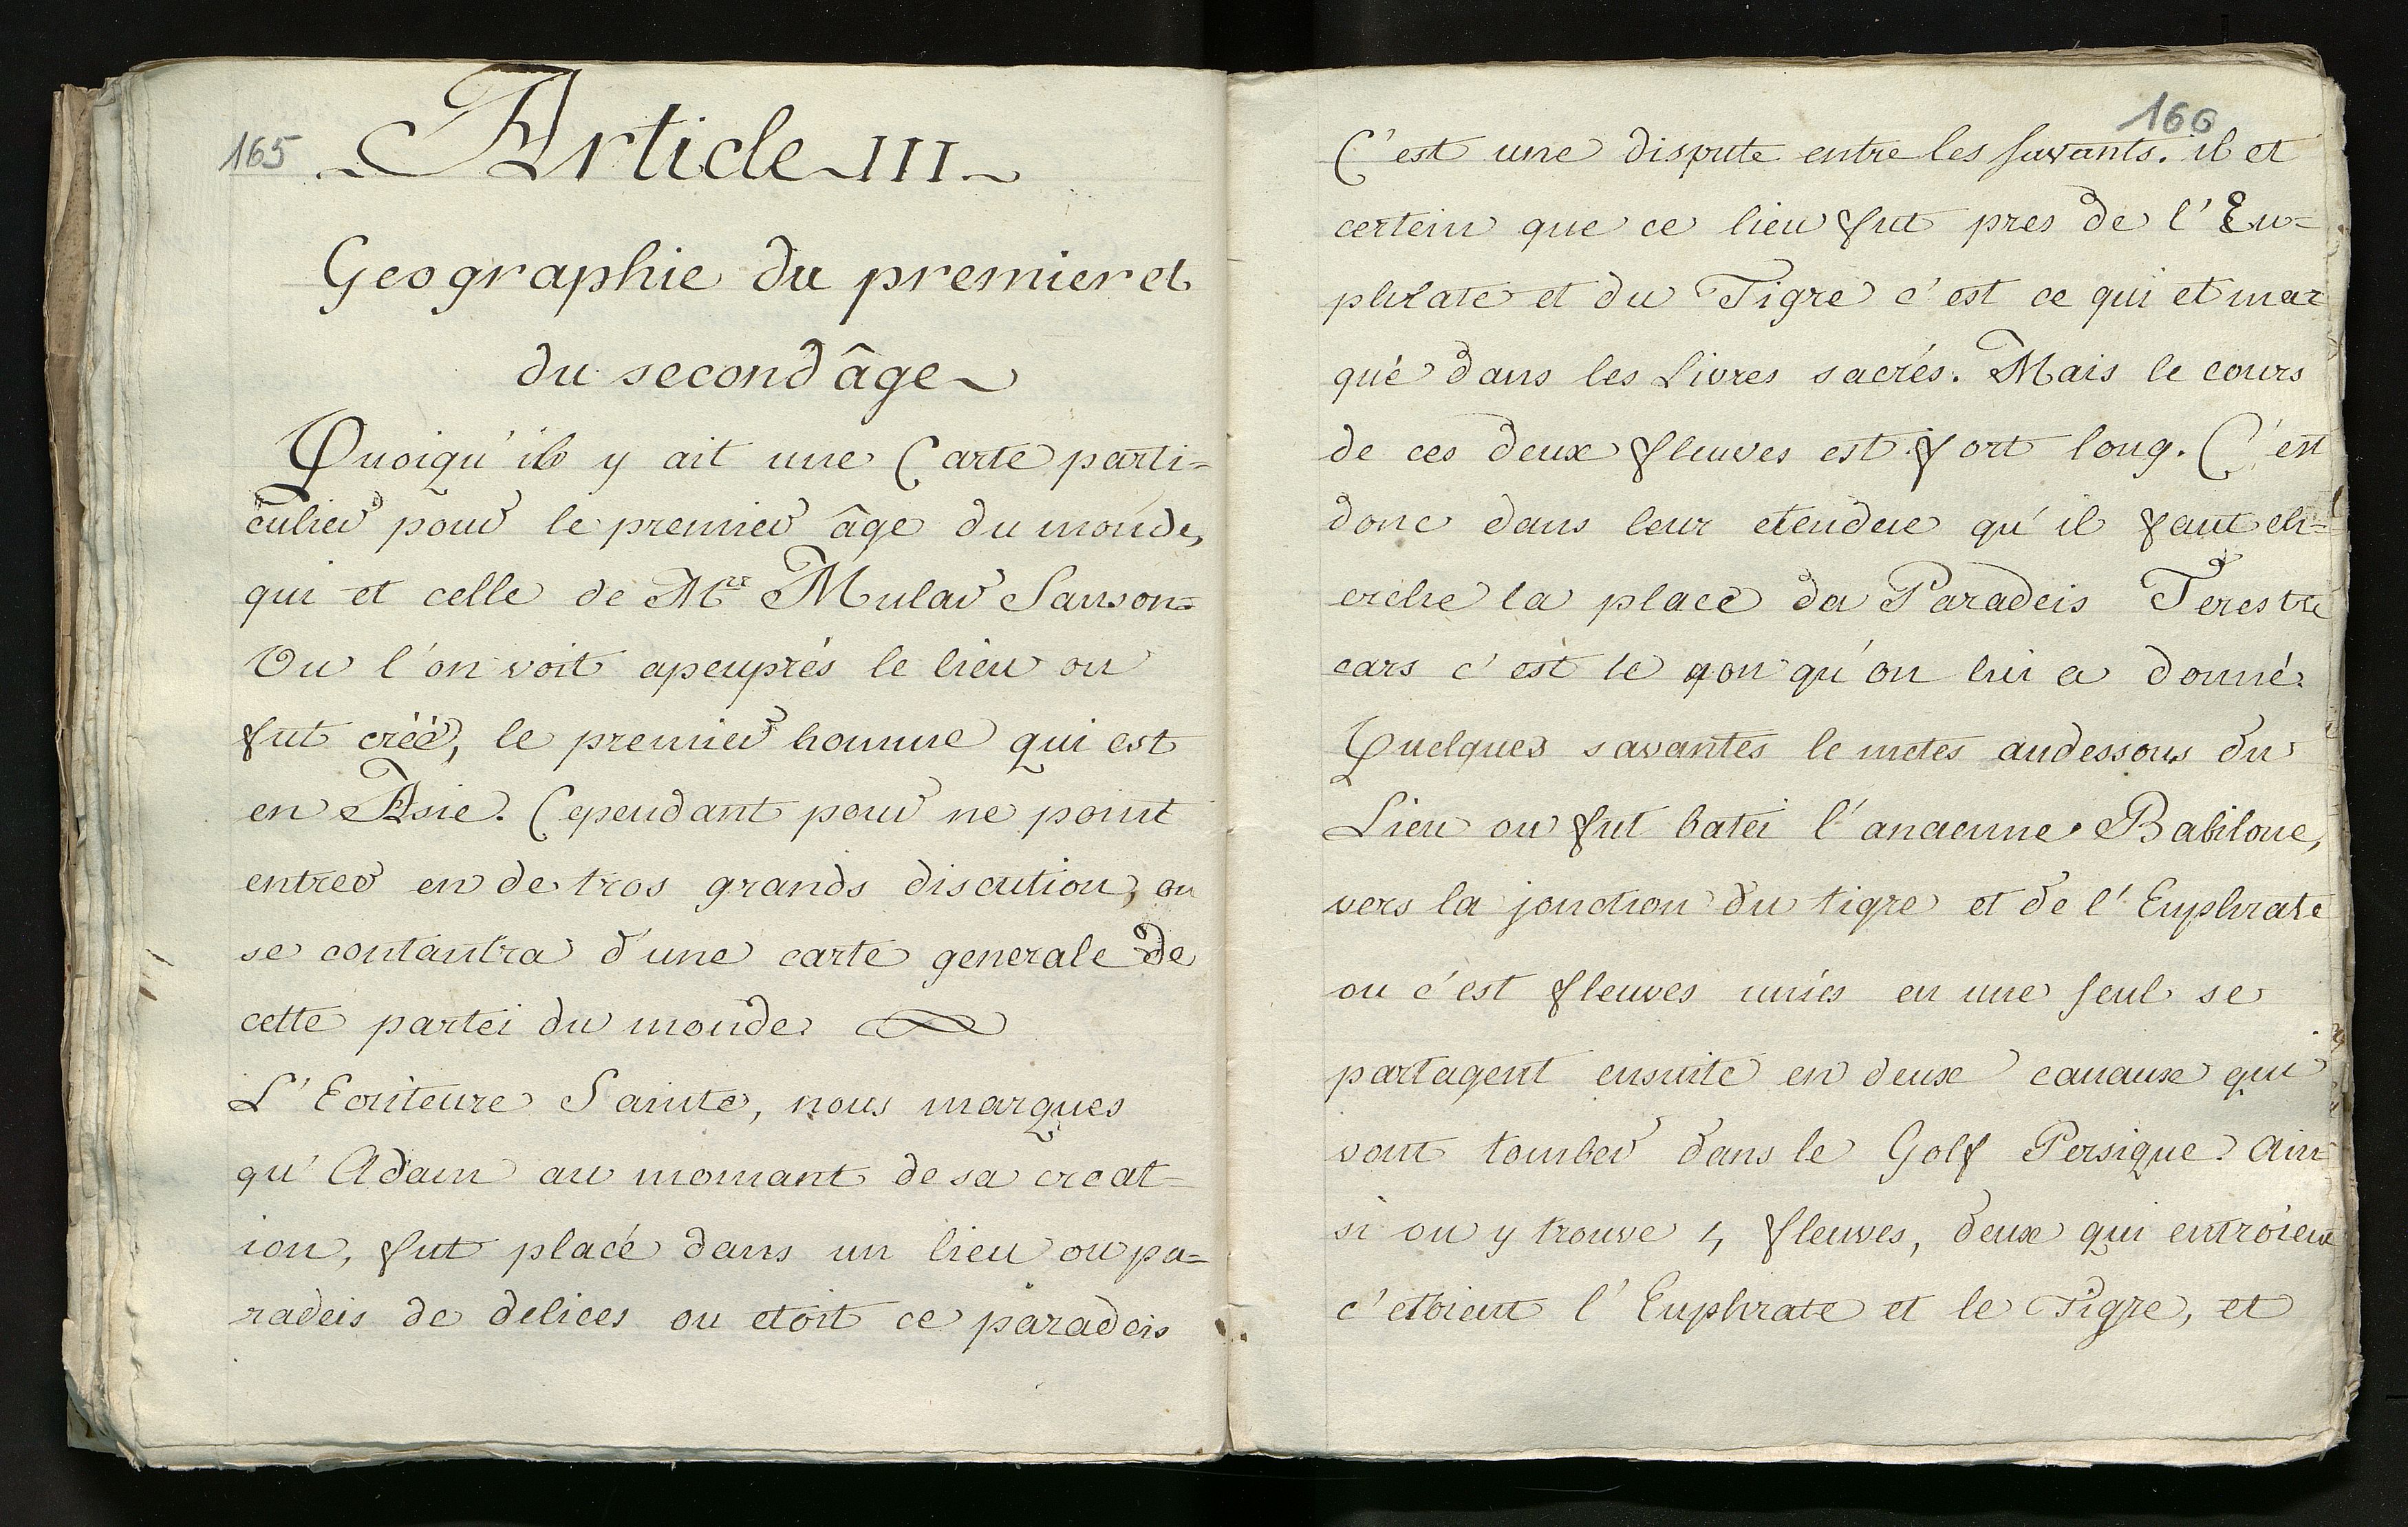 165
Article III
Geographie du premier et
du second âge
Quoiqu'il y ait une Carte parti=
culier pour le premier âge du monde,
qui et celle de Mrr Mular Sanson=
Ou l'on voit apeuprés le lieu ou
fut créé, le premier homme qui est
en Asie. Cependant pour ne point
entrer en de tros grands discution, on
se contantra d'une carte generale de
cette partei du monde.
L'Ecriteure Sainte, nous marques
qu'Adam au momant de sa creat=
ion, fut placé dans un lieu ou pa=
radeis de delices ou etoit ce paradeis
166
C'est une dispute entre les savants. il et
certein que ce lieu fut pres de l'Eu=
phrate et du Tigre c'est ce qui et mar
qué dans les Livres sacrés. Mais le cours
de ces deux fleuves est fort long. C'est
donc dans leur etendue qu'il faut ch=
erche la place da Paradeis Terestre
cars c'est le non qu'on lui a donné.
Quelques savantes le metes audessous du
Lieu ou fut batei l'ancienne Babilone,
vers la jonction du tigre et de l'Euphrate
ou c'est fleuves uniés en une seul se
partagent ensuite en deux canaux qui
vont tomber dans le Golf Persique. Ain
si on y trouve 4 fleuves, deux qui entroient
c'etoient l'Euphrate et le Tigre, et